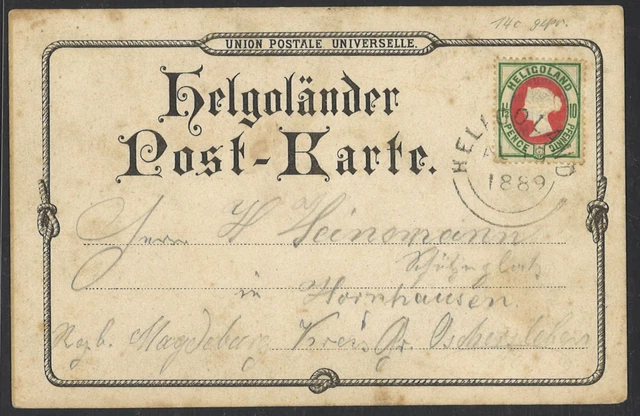 14c gepr.
UNION POSTALE UNIVERSELLE.
Helgoländer
Post-Karte.
HELIGOLAND
PENCE
10 PFENNIG
HELIGOLAND
1889
Herrn H Heinemann
in Hornhausen
Rgzb. Magdeburg Kreis Gr. Oschersleben